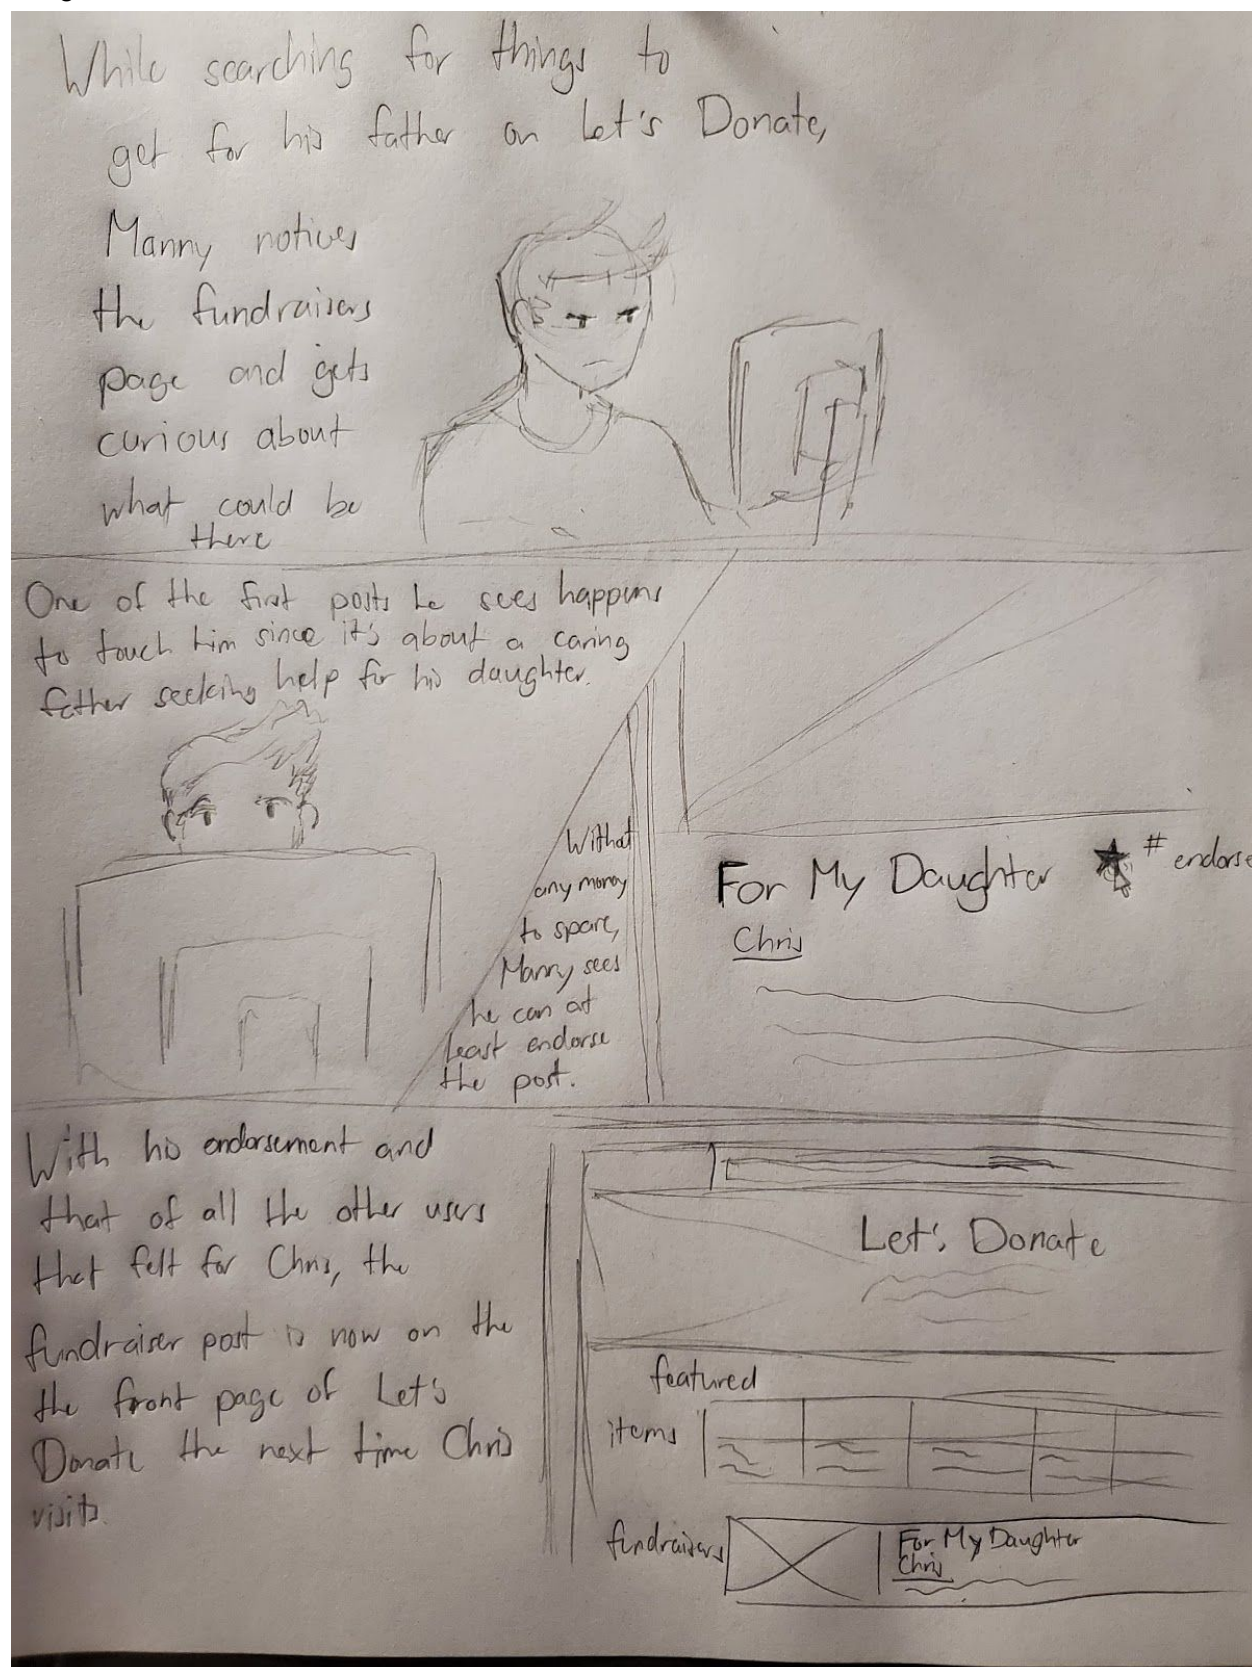 While searching for things to
get for his father on Let's Donate,
Manny notices
the fundraisers
page and gets
curious about
what could be
there
One of the first posts he sees happens
to touch him since it's about a caring
father seeking help for his daughter.
Without
any money
to spare,
Manny sees
he can at
least endorse
the post.
For My Daughter ★ # endorse
Chris
With his endorsement and
that of all the other users
that felt for Chris, the
fundraiser post is now on the
the front page of Let's
Donate the next time Chris
visits.
Let's Donate
featured
items
fundraisers
For My Daughter
Chris